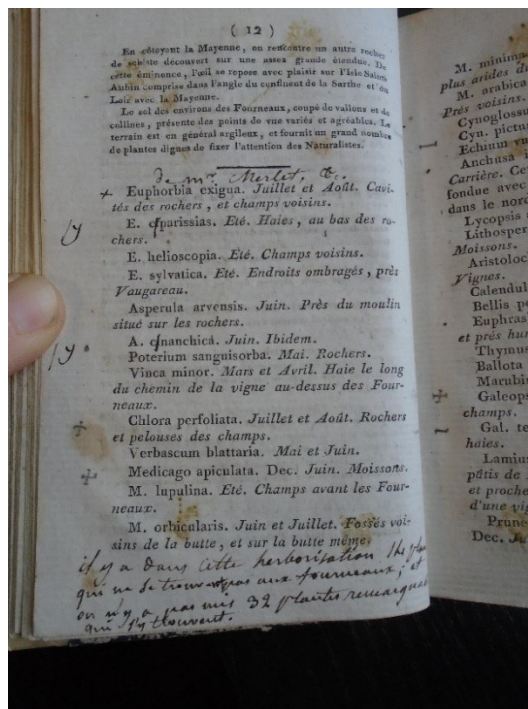 ( 12 )
En côtoyant la Mayenne, on rencontre un autre rocher
de schiste découvert sur une assez grande étendue. De
cette éminence, l'œil se repose avec plaisir sur l'Isle Saint-
Aubin comprise dans l'angle du confluent de la Sarthe et du
Loir avec la Mayenne.
Le sol des environs des Fourneaux, coupé de vallons et de
collines, présente des points de vue variés et agréables. Le
terrain est en général argileux, et fournit un grand nombre
de plantes dignes de fixer l'attention des Naturalistes.
de mr. Merlet, &c.
+ Euphorbia exigua. Juillet et Août. Cavi-
tés des rochers, et champs voisins.
/y E. cparissias. Eté. Haies, au bas des ro-
chers.
E. helioscopia. Eté. Champs voisins.
E. sylvatica. Eté. Endroits ombragés, près
Vaugareau.
Asperula arvensis. Juin. Près du moulin
situé sur les rochers.
/y. A. cinanchicà. Juin. Ibidem.
Poterium sanguisorba. Mai. Rochers.
Vinca minor. Mars et Avril. Haie le long
du chemin de la vigne au-dessus des Four-
neaux.
+ Chlora perfoliata. Juillet et Août. Rochers
et pelouses des champs.
Verbascum blattaria. Mai et Juin.
+ Medicago apiculata. Dec. Juin. Moissons.
M. lupulina. Eté. Champs avant les Four-
neaux.
M. orbicularis. Juin et Juillet. Fossés voi-
sins de la butte, et sur la butte même.
il y a dans cette herborisation
qui ne se trouvent pas aux fourneaux; et
on n'y a pas mis 32 plantes remarqua
qui s'y trouvent.
M. minima
plus arides d
M. arabica
Près voisins.
Cynoglossu
Cyn. pictu
Echium vu
Anchusa i
Carrière. Ce
fondue avec
dans le nord
Lycopsis
Lithosper
Moissons.
Aristoloc
Vignes.
Calendul
Bellis pe
Euphras
et prés hum
Thymus
Ballota
Marubi
+ Galeops
champs.
— Gal. te
haies.
Lamiu
pâtis de
et proche
d'une vig
Prune
Dec. Ju